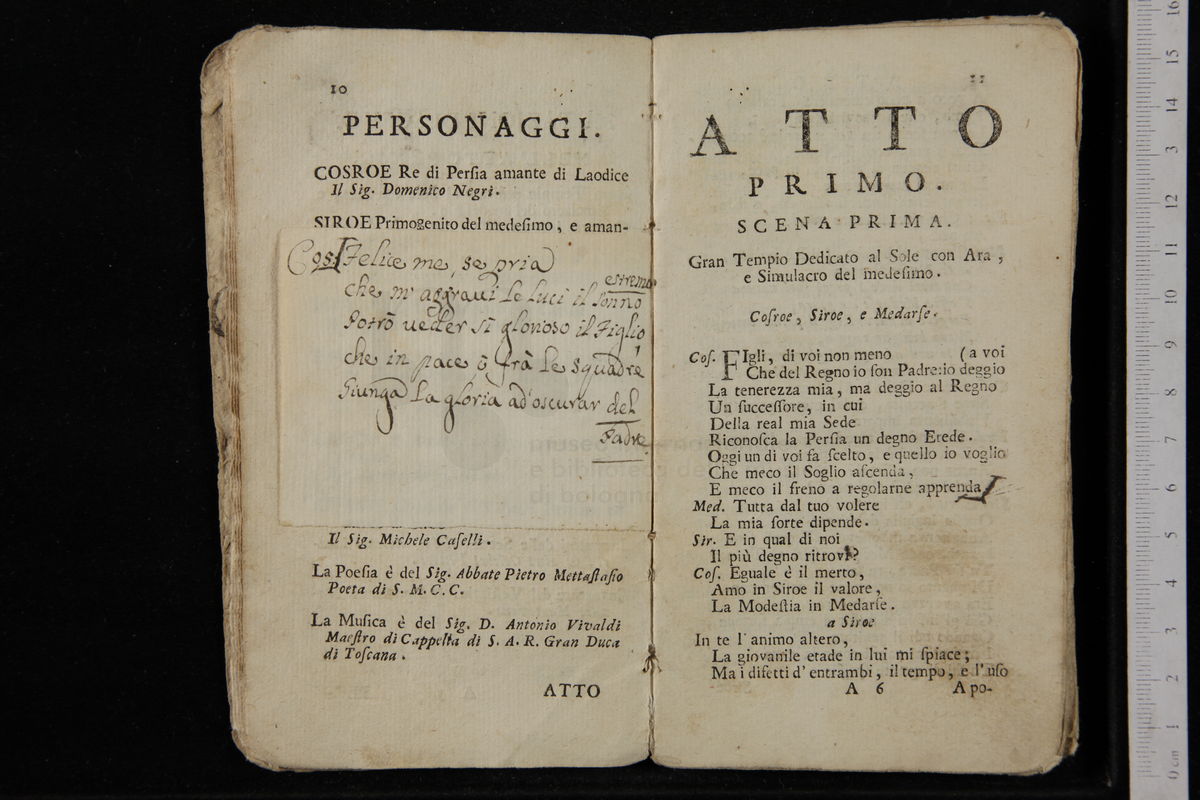 10
PERSONAGGI.
COSROE Re di Perſia amante di Laodice
Il Sig. Domenico Negri.
SIROE Primogenito del medeſimo, e aman-
Cos. Felice me, se pria
estremo
che m'aggravi le luci il sonno
Potrò veder sì glorioso il Figlio
che in pace ò frà le squadre
Giunga la gloria ad oscurar del
Padre
Il Sig. Michele Caſelli.
La Poeſia è del Sig. Abbate Pietro Mettaſtaſio
Poeta di S. M. C. C.
La Muſica è del Sig. D. Antonio Vivaldi
Maeſtro di Cappella di S. A. R. Gran Duca
di Toſcana.
ATTO
11
ATTO
PRIMO.
SCENA PRIMA.
Gran Tempio Dedicato al Sole con Ara,
e Simulacro del medeſimo.
Coſroe, Siroe, e Medarſe.
Coſ. FIgli, di voi non meno (a voi
Che del Regno io ſon Padre:io deggio
La tenerezza mia, ma deggio al Regno
Un ſucceſſore, in cui
Della real mia Sede
Riconoſca la Perſia un degno Erede.
Oggi un di voi ſa ſcelto, e quello io voglio
Che meco il Soglio aſcenda,
E meco il freno a regolarne apprenda
Med. Tutta dal tuo volere
La mia ſorte dipende.
Sir. E in qual di noi
Il più degno ritrovi?
Coſ. Eguale è il merto,
Amo in Siroe il valore,
La Modeſtia in Medarſe.
a Siroe
In te l'animo altero,
La giovanile etade in lui mi ſpiace;
Ma i difetti d'entrambi, il tempo, e l'uſo
A 6 Apo-
museo
e biblioteca de
di bologna
16
15
14
13
12
11
10
9
8
7
6
5
4
3
2
1
0 cm